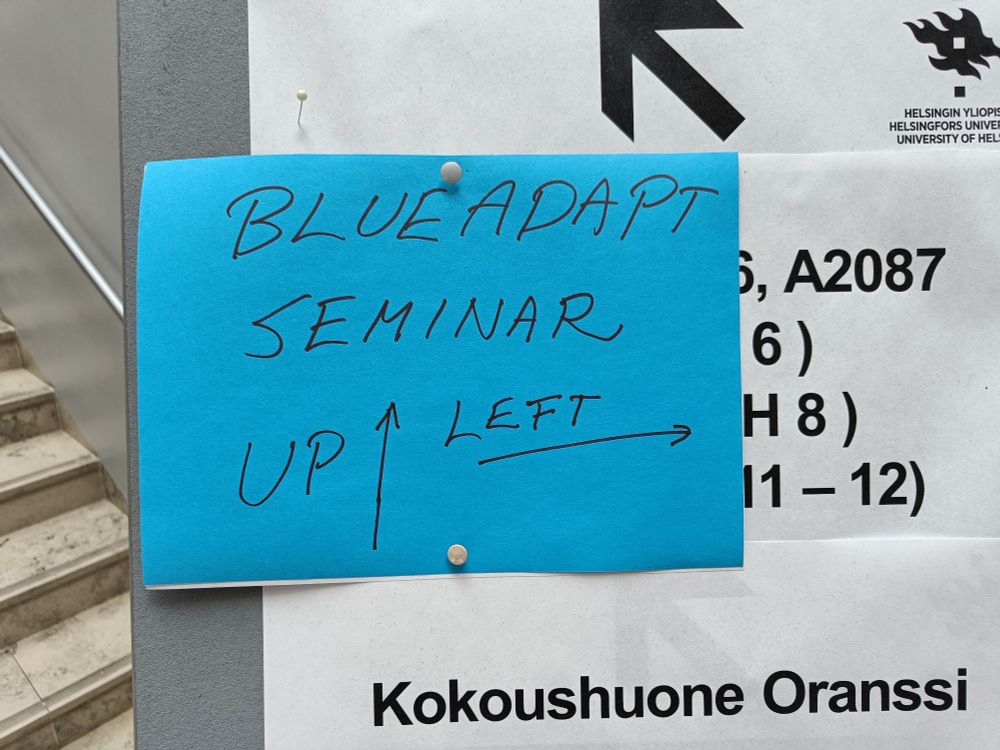 HELSINGIN YLIOPIS
HELSINGFORS UNIVER
UNIVERSITY OF HELS
BLUEADAPT
SEMINAR
UP LEFT
6, A2087
6 )
H 8 )
11 – 12)
Kokoushuone Oranssi